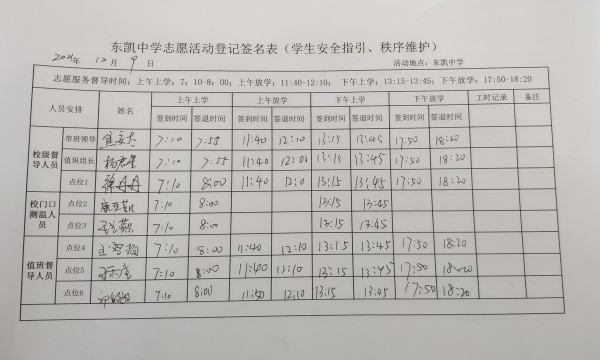 东凯中学志愿活动登记签名表（学生安全指引、秩序维护）
2021年 12月 9日 活动地点：东凯中学
志愿服务督导时间：上午上学：7：10-8：00；上午放学：11:40-12:10； 下午上学：13:15-13:45；下午放学：17:50-18:20
人员安排 姓名 上午上学 上午放学 下午上学 下午放学 工时记录 备注
签到时间 签退时间 签到时间 签退时间 签到时间 签退时间 签到时间 签退时间
校级督导人员
带班领导 7:10 7:55 11:40 12:10 13:15 13:45 17:50 18:20
值班组长 7:10 7:55 11:40 13:15 13:45 17:50 18:20
点位1 徐丹丹 7:10 8:00 11:40 13:15 13:45 17:50 18:20
校门口测温人员
点位2 7:10 8:00 13:15 13:45
点位3 7:10 8:00 13:15 13:45
值班督导人员
点位4 7:10 8:00 11:40 12:10 13:15 13:45 17:50 18:20
点位5 7:10 8:00 11:40 12:10 13:15 13:45 17:50 18:20
点位6 7:10 8:00 11:50 12:10 13:15 13:45 17:50 18:20